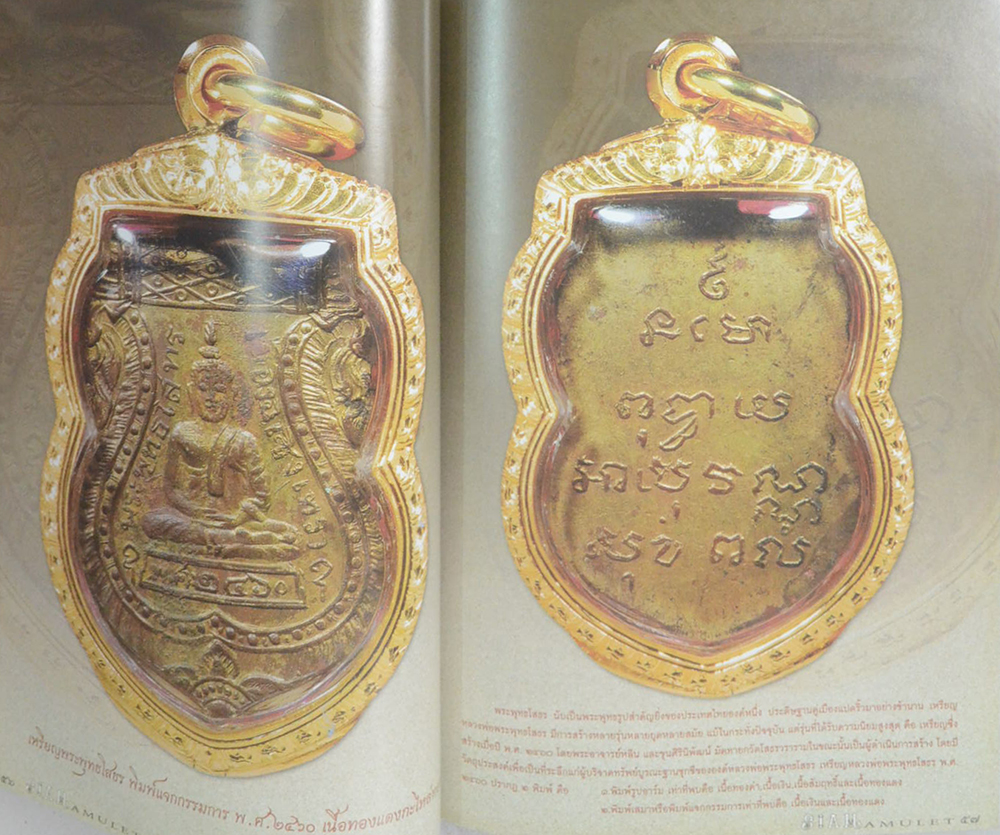 พระพุทธโสทร
เมืองฉะเชิงเทรา
พ.ศ.๒๔๖๐
เหรียญพระพุทธโสธร พิมพ์แจกกรรมการ พ.ศ.๒๔๖๐ เนื้อทองแดงกะไหล่ทอง
๕๖ SIAM AMULET
นะ โม
พุทฺธา ย
อายุ วณฺณ
สุข พลํ
พระพุทธโสธร นับเป็นพระพุทธรูปสำคัญยิ่งของประเทศไทยองค์หนึ่ง ประดิษฐานคู่เมืองแปดริ้วมาอย่างช้านาน เหรียญ
หลวงพ่อพระพุทธโสธร มีการสร้างหลายรุ่นหลายยุคหลายสมัย แม้ในกระทั่งปัจจุบัน แต่รุ่นที่ได้รับความนิยมสูงสุด คือ เหรียญซึ่ง
สร้างเมื่อปี พ.ศ. ๒๔๖๐ โดยพระอาจารย์หลิน และขุนศิรินิพัฒน์ มัคทายกวัดโสธรวรารามในขณะนั้นเป็นผู้ดำเนินการสร้าง โดยมี
วัตถุประสงค์เพื่อเป็นที่ระลึกแก่ผู้บริจาคทรัพย์บูรณะฐานชุกชีขององค์หลวงพ่อพระพุทธโสธร เหรียญหลวงพ่อพระพุทธโสธร พ.ศ.
๒๔๖๐ ปรากฏ ๒ พิมพ์ คือ ๑.พิมพ์รูปอาร์ม เท่าที่พบคือ เนื้อทองคำ,เนื้อเงิน,เนื้อสัมฤทธิ์และเนื้อทองแดง
๒.พิมพ์เสมาหรือพิมพ์แจกกรรมการเท่าที่พบคือ เนื้อเงินและเนื้อทองแดง
SIAM AMULET ๕๗